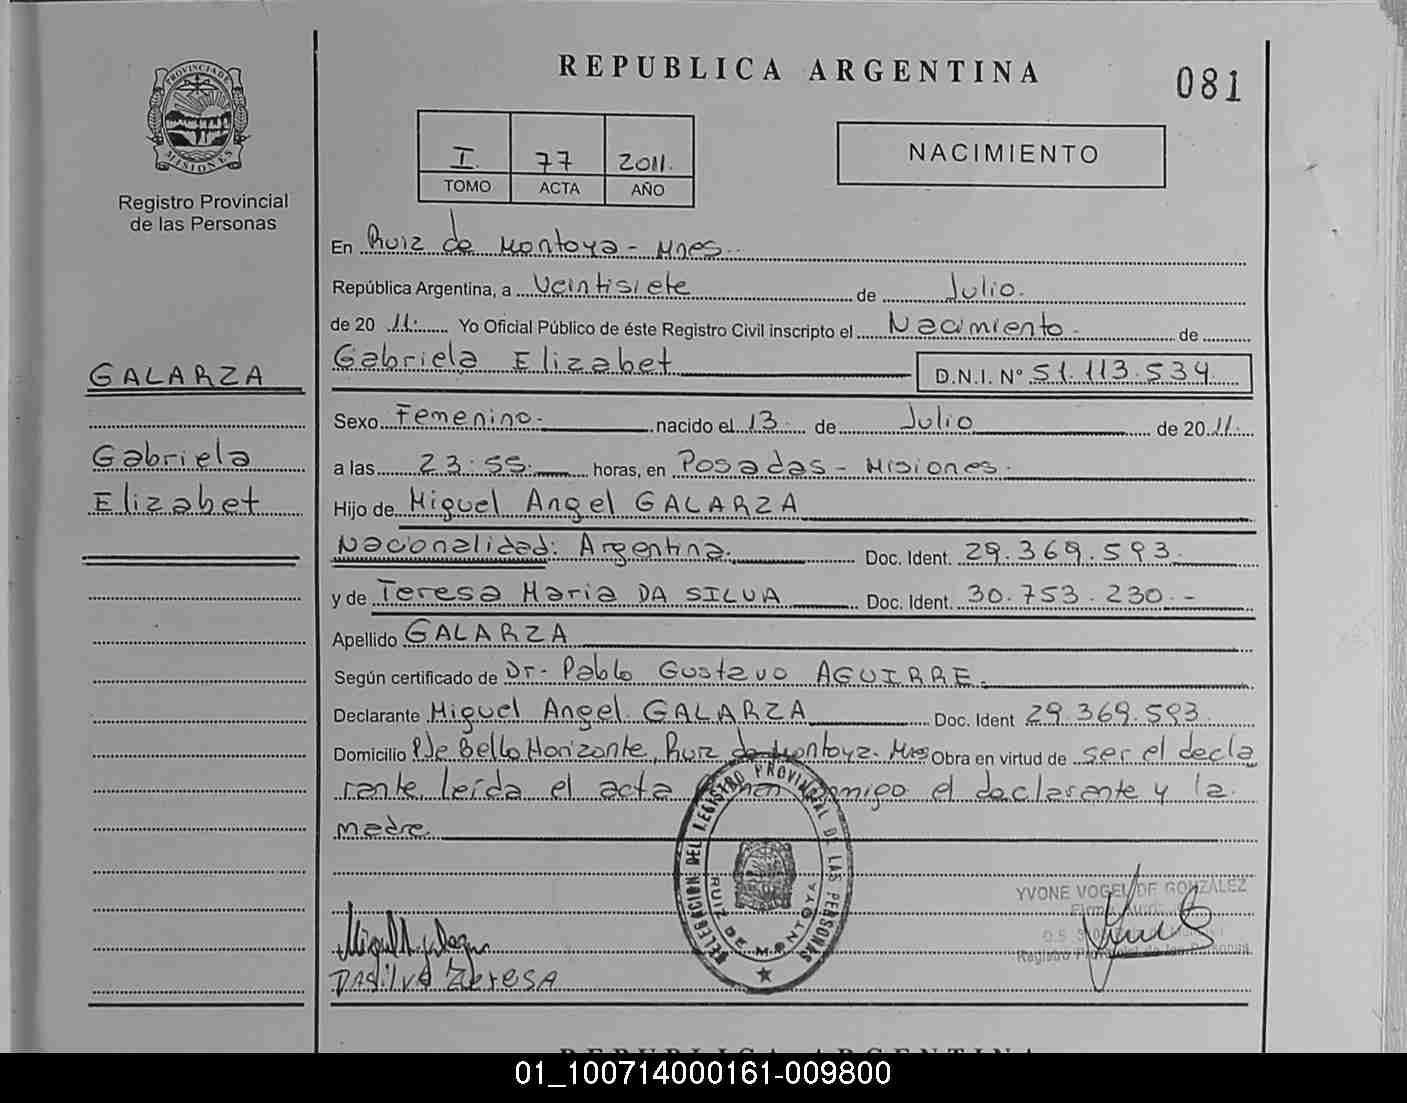 REPUBLICA ARGENTINA
081
PROVINCIA DE MISIONES
Registro Provincial
de las Personas
I. 77 2011.
TOMO ACTA AÑO
NACIMIENTO
En Ruiz de Montoya - Mnes.
República Argentina, a Veintisiete de Julio.
de 20 11. Yo Oficial Público de éste Registro Civil inscripto el Nacimiento. de
Gabriela Elizabet D.N.I. N° 51.113.534
GALARZA
Gabriela
Elizabet
Sexo Femenino. nacido el 13 de Julio de 20 11.
a las 23:55. horas, en Posadas - Misiones.
Hijo de Miguel Angel GALARZA
Nacionalidad: Argentina. Doc. Ident. 29.369.593.
y de Teresa Maria DA SILVA Doc. Ident. 30.753.230.-
Apellido GALARZA
Según certificado de Dr- Pablo Gustavo AGUIRRE.
Declarante Miguel Angel GALARZA Doc. Ident 29.369.593.
Domicilio Pje Bello Horizonte, Ruiz de Montoya. Mnes Obra en virtud de ser el decla
rante, leída el acta conmigo el declarante y la
madre.
DELEGACION DEL REGISTRO PROVINCIAL DE LAS PERSONAS
RUIZ DE MONTOYA
YVONE VOGEL DE GONZALEZ
Registro Provincial de las Personas
DASilVA TeresA
REPUBLICA ARGENTINA
01_100714000161-009800